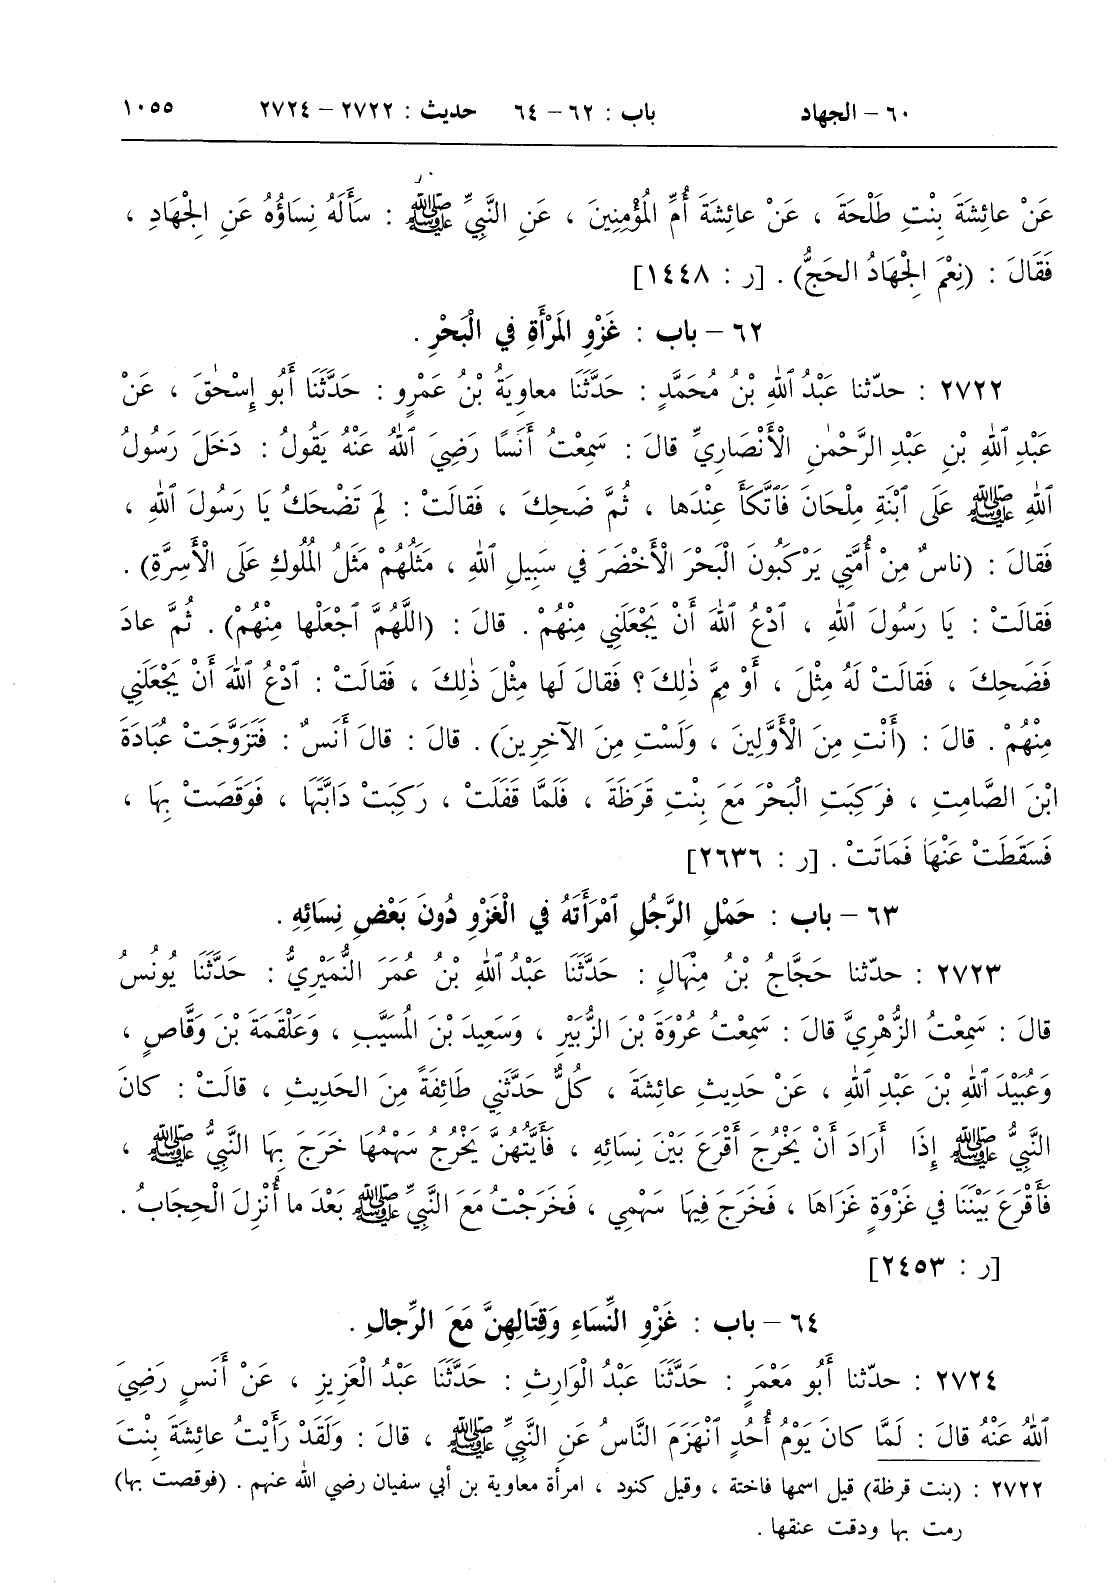 ٦٠ – الجهاد باب : ٦٢ – ٦٤ حديث : ٢٧٢٢ – ٢٧٢٤ ١٠٥٥
عَنْ عائِشَةَ بِنْتِ طَلْحَةَ ، عَنْ عائِشَةَ أُمِّ الْمُؤْمِنِينَ ، عَنِ النَّبِيِّ ﷺ : سَأَلَهُ نِسَاؤُهُ عَنِ الْجِهَادِ ،
فَقَالَ : (نِعْمَ الْجِهَادُ الحَجُّ) . [ر : ١٤٤٨]
٦٢ – باب : غَزْوِ المَرْأَةِ فِي الْبَحْرِ .
٢٧٢٢ : حدّثنا عَبْدُ ٱللهِ بْنُ مُحَمَّدٍ : حَدَّثَنَا معاوِيَةُ بْنُ عَمْرٍو : حَدَّثَنَا أَبُو إِسْحٰقَ ، عَنْ
عَبْدِ ٱللهِ بْنِ عَبْدِ الرَّحْمٰنِ الْأَنْصَارِيِّ قالَ : سَمِعْتُ أَنَسًا رَضِيَ ٱللهُ عَنْهُ يَقُولُ : دَخَلَ رَسُولُ
ٱللهِ ﷺ عَلَى ٱبْنَةِ مِلْحَانَ فَٱتَّكَأَ عِنْدَها ، ثُمَّ ضَحِكَ ، فَقالَتْ : لِمَ تَضْحَكُ يَا رَسُولَ ٱللهِ ،
فَقالَ : (ناسٌ مِنْ أُمَّتِي يَرْكَبُونَ الْبَحْرَ الْأَخْضَرَ في سَبِيلِ ٱللهِ ، مَثَلُهُمْ مَثَلُ المُلُوكِ عَلَى الْأَسِرَّةِ) .
فَقَالَتْ : يَا رَسُولَ ٱللهِ ، ٱدْعُ ٱللهَ أَنْ يَجْعَلَنِي مِنْهُمْ . قالَ : (اللَّهُمَّ ٱجْعَلْها مِنْهُمْ) . ثُمَّ عادَ
فَضَحِكَ ، فَقَالَتْ لَهُ مِثْلَ ، أَوْ مِمَّ ذٰلِكَ ؟ فَقالَ لَها مِثْلَ ذٰلِكَ ، فَقالَتْ : ٱدْعُ ٱللهَ أَنْ يَجْعَلَنِي
مِنْهُمْ . قالَ : (أَنْتِ مِنَ الْأَوَّلِينَ ، وَلَسْتِ مِنَ الآخِرِينَ) . قالَ : قالَ أَنَسٌ : فَتَزَوَّجَتْ عُبَادَةَ
ابْنَ الصَّامِتِ ، فَرَكِبَتِ الْبَحْرَ مَعَ بِنْتِ قَرَظَةَ ، فَلَمَّا قَفَلَتْ ، رَكِبَتْ دَابَّتَهَا ، فَوَقَصَتْ بِهَا ،
فَسَقَطَتْ عَنْهَا فَمَاتَتْ . [ر : ٢٦٣٦]
٦٣ – باب : حَمْلِ الرَّجُلِ ٱمْرَأَتَهُ فِي الْغَزْوِ دُونَ بَعْضِ نِسَائِهِ .
٢٧٢٣ : حدّثنا حَجَّاجُ بْنُ مِنْهَالٍ : حَدَّثَنَا عَبْدُ ٱللهِ بْنُ عُمَرَ النُّمَيْرِيُّ : حَدَّثَنَا يُونُسُ
قالَ : سَمِعْتُ الزُّهْرِيَّ قالَ : سَمِعْتُ عُرْوَةَ بْنَ الزُّبَيْرِ ، وَسَعِيدَ بْنَ المُسَيَّبِ ، وَعَلْقَمَةَ بْنَ وَقَّاصٍ ،
وَعُبَيْدَ ٱللهِ بْنَ عَبْدِ ٱللهِ ، عَنْ حَدِيثِ عائِشَةَ ، كُلٌّ حَدَّثَنِي طَائِفَةً مِنَ الحَدِيثِ ، قالَتْ : كانَ
النَّبِيُّ ﷺ إِذَا أَرَادَ أَنْ يَخْرُجَ أَقْرَعَ بَيْنَ نِسَائِهِ ، فَأَيَّتُهُنَّ يَخْرُجُ سَهْمُهَا خَرَجَ بِهَا النَّبِيُّ ﷺ ،
فَأَقْرَعَ بَيْنَنَا في غَزْوَةٍ غَزَاهَا ، فَخَرَجَ فِيهَا سَهْمِي ، فَخَرَجْتُ مَعَ النَّبِيِّ ﷺ بَعْدَ ما أُنْزِلَ الْحِجَابُ .
[ر : ٢٤٥٣]
٦٤ – باب : غَزْوِ النِّسَاءِ وَقِتَالِهِنَّ مَعَ الرِّجالِ .
٢٧٢٤ : حدّثنا أَبُو مَعْمَرٍ : حَدَّثَنَا عَبْدُ الْوَارِثِ : حَدَّثَنَا عَبْدُ الْعَزِيزِ ، عَنْ أَنَسٍ رَضِيَ
ٱللهُ عَنْهُ قالَ : لَمَّا كانَ يَوْمُ أُحُدٍ ٱنْهَزَمَ النَّاسُ عَنِ النَّبِيِّ ﷺ ، قالَ : وَلَقَدْ رَأَيْتُ عائِشَةَ بِنْتَ
٢٧٢٢ : (بنت قرظة) قيل اسمها فاختة ، وقيل كنود ، امرأة معاوية بن أبي سفيان رضي الله عنهم . (فوقصت بها)
رمت بها ودقت عنقها .